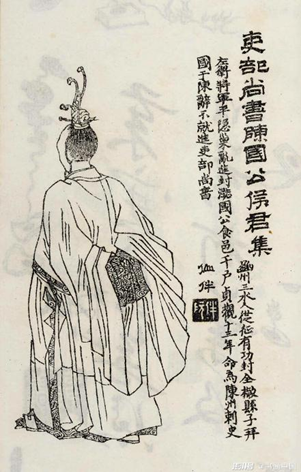 吏部尚書陳國公侯君集
豳州三水人從征有功封全椒縣子拜
左衛將軍平隱巢亂進封潞國公食邑千戶貞觀十三年命為陳州刺史
國于陳辭不就進吏部尚書
伴阮